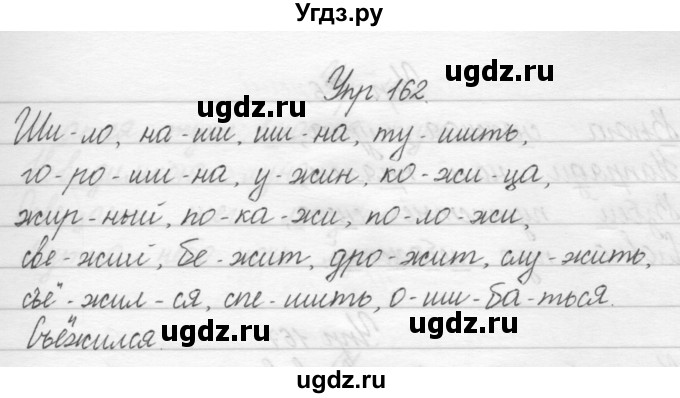 Угдз.ру
ugdz.ru
Упр. 162.
ugdz.ru
Ши-ло, на-ши, ши-на, ту-шить,
го-ро-ши-на, у-жин, ко-жи-ца,
ugdz.ru
ugdz.ru
жир-ный, по-ка-жи, по-ло-жи,
све-жий, бе-жит, дро-жит, слу-жить,
ugdz.ru
ugdz.ru
съё-жил-ся, спе-шить, о-ши-ба-ться.
ugdz.ru
ugdz.ru
Съёжился.
ugdz.ru